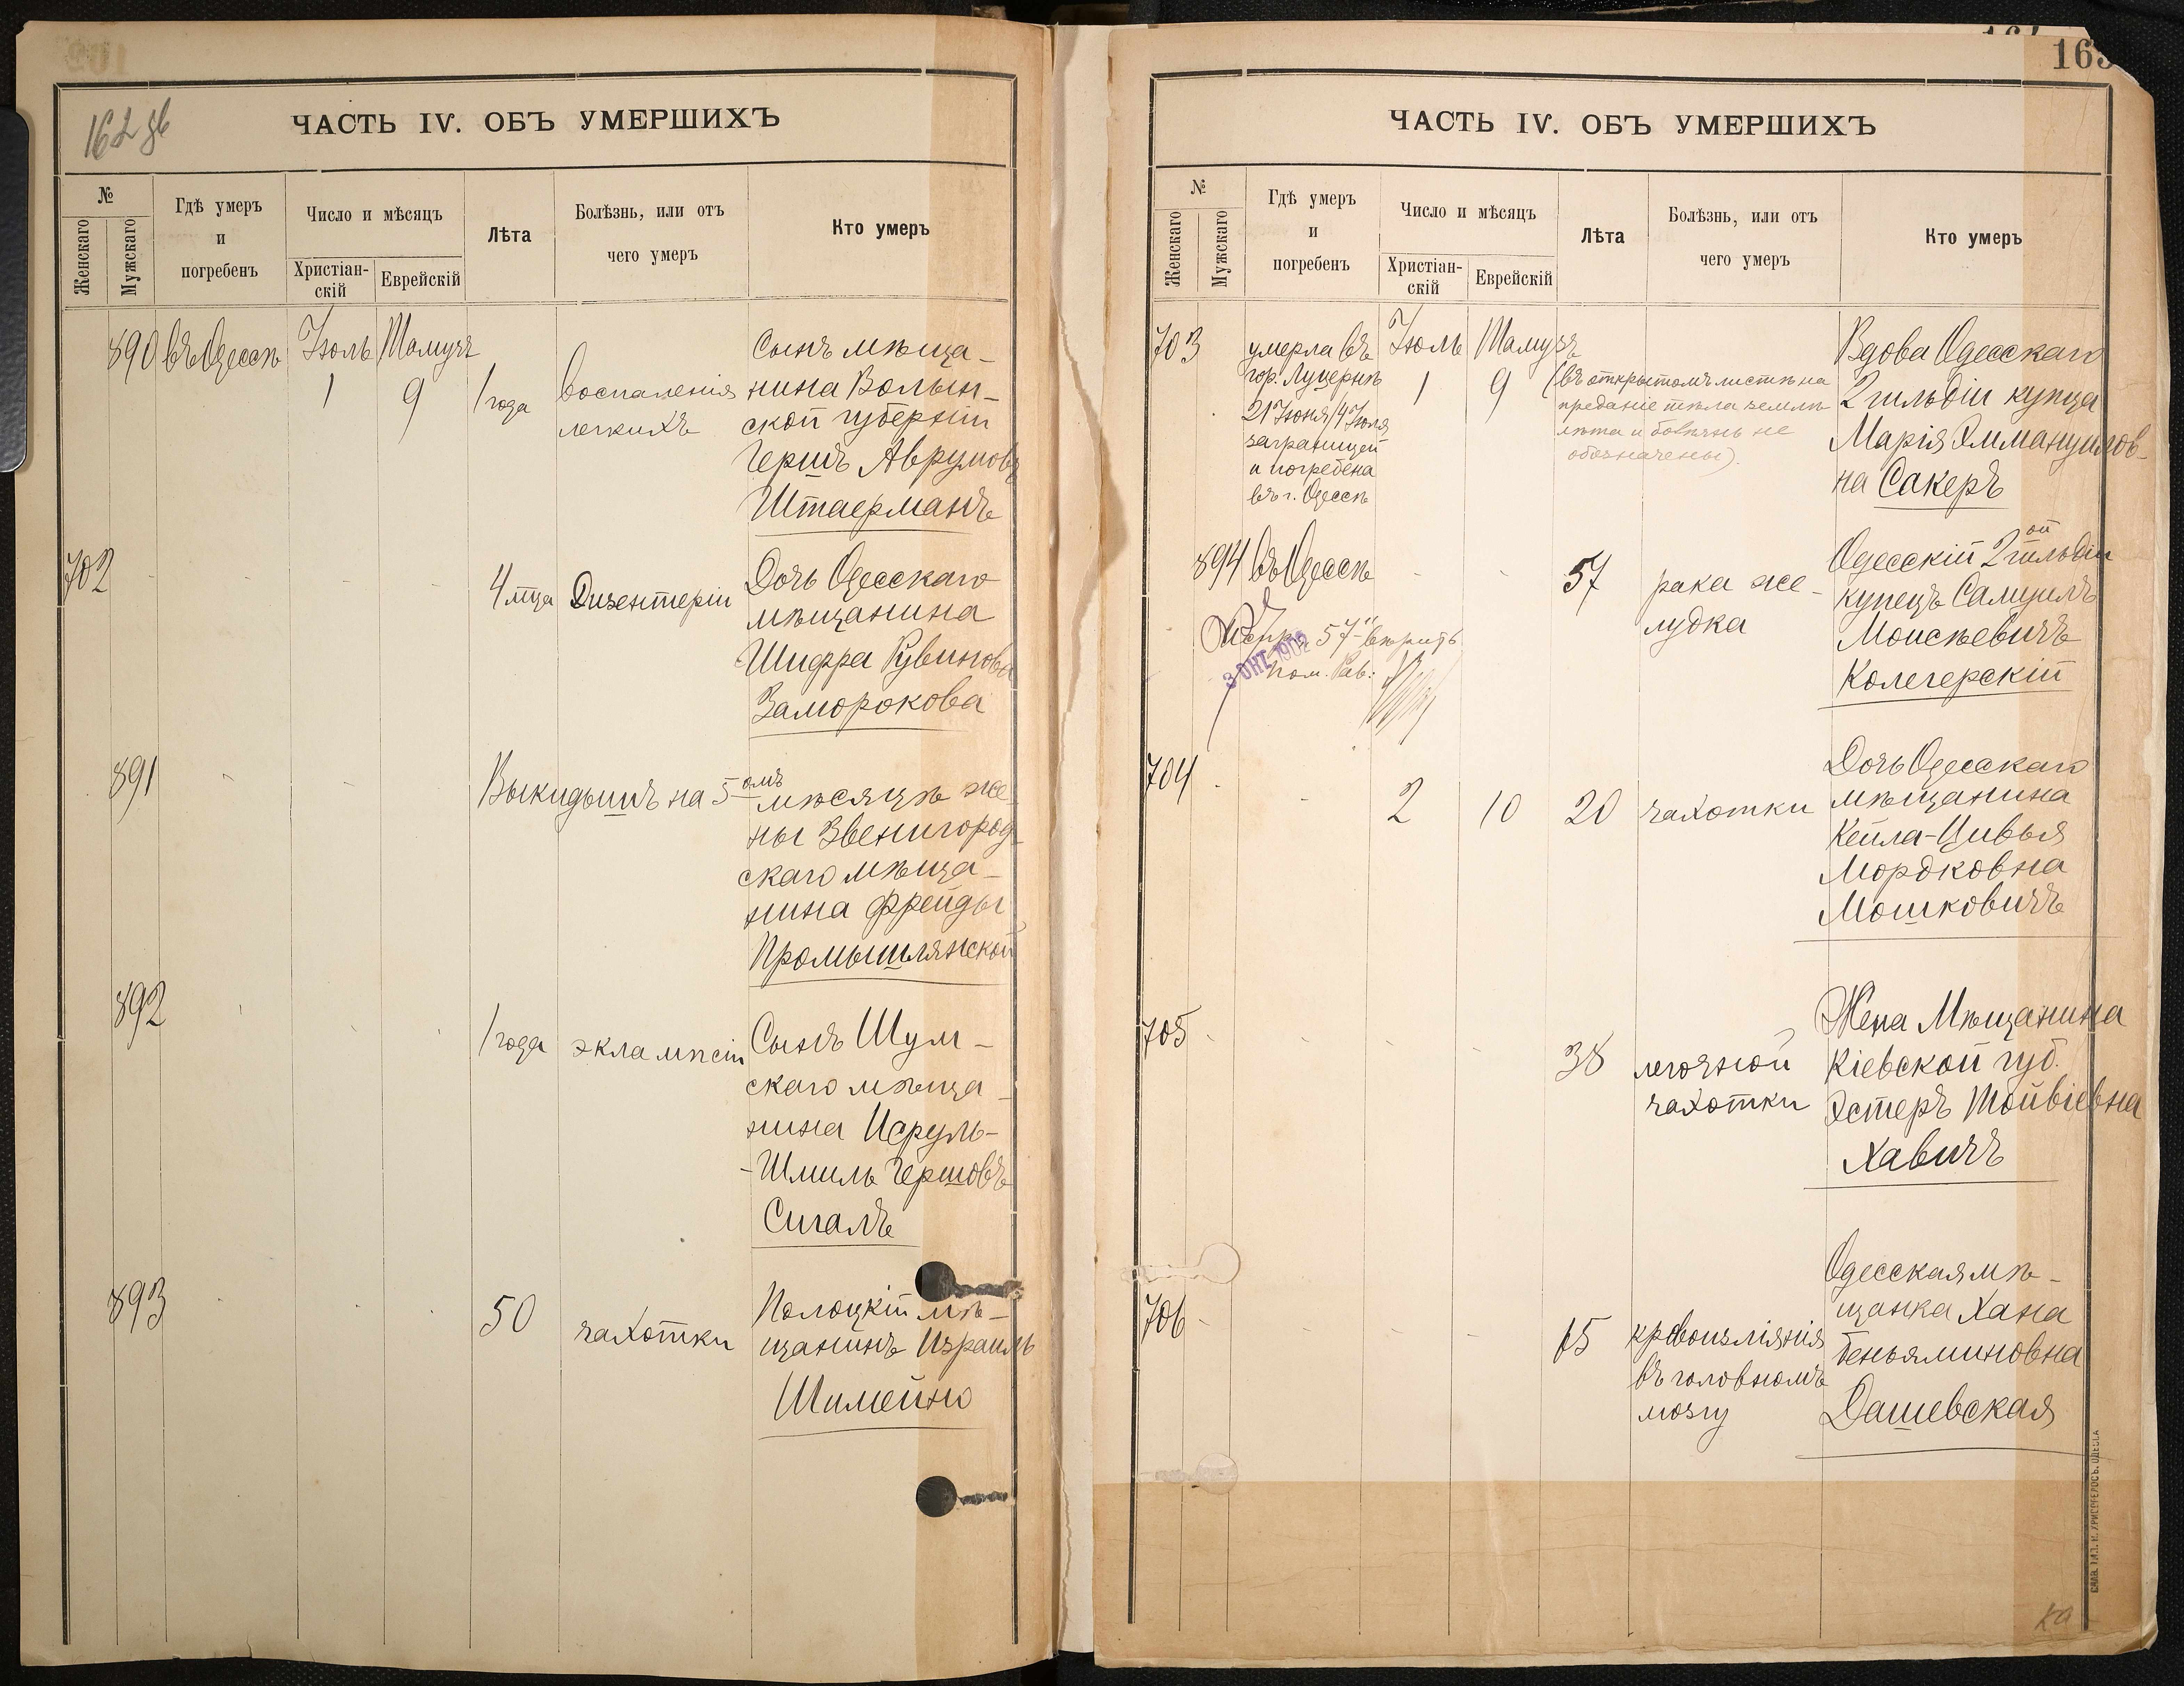 162 зв
ЧАСТЬ IV. ОБЪ УМЕРШИХЪ
№
Женскаго
Мужскаго
Гдѣ умеръ
и
погребенъ
Число и мѣсяцъ
Христіан-
скій
Еврейскій
Лѣта
Болѣзнь, или отъ
чего умеръ
Кто умеръ
890 въ Одессѣ Іюль Тамузъ
1 9 1 года
воспаленія
легкихъ
Сынъ мѣща-
нина Волын-
ской губерніи
Гершъ Аврумовъ
Штаерманъ
702
4 мца Дизентеріи
Дочь Одесскаго
мѣщанина
Шифра Рувинова
Заморокова
891
Выкидышъ на 5-омъ мѣсяцѣ же-
ны Звенигород-
скаго мѣща-
нина Фрейды
Промышлянской
892
1 года эклампсіи
Сынъ Шум-
скаго мѣща-
нина Исруль-
-Шмиль Гершовъ
Сигалъ
893
50 чахотки
Полоцкій мѣ-
щанинъ Израиль
Шимейно
163
ЧАСТЬ IV. ОБЪ УМЕРШИХЪ
№
Женскаго
Мужскаго
Гдѣ умеръ
и
погребенъ
Число и мѣсяцъ
Христіан-
скій
Еврейскій
Лѣта
Болѣзнь, или отъ
чего умеръ
Кто умеръ
703
умерла въ
гор. Луцернѣ
21 Іюня/4 Іюля
заграницей
и погребена
въ г. Одессѣ
Іюль Тамузъ
1 9
(въ открытомъ листѣ на
преданіе тѣла землѣ
лѣта и болѣзнь не
обозначены).
Вдова Одесскаго
2 гильдіи купца
Марія Эммануилов-
на Сакеръ
894 въ Одессѣ
57 рака же-
лудка
Одесскій 2ой гильдіи
купецъ Самуилъ
Моисѣевичъ
Колегерскій
57" вѣрить
3 ОКТ 1902
Пом. Рав.
704
2 10 20 чахотки
Дочь Одесскаго
мѣщанина
Кейла-Цивья
Мордковна
Мошковичъ
705
38 легочной
чахотки
Жена Мѣщанина
Кіевской губ.
Эстеръ Тойвіевна
Хавичъ
706
65 кровоизліянія
въ головномъ
мозгу
Одесская мѣ-
щанка Хана
Беньяминовна
Дашевская